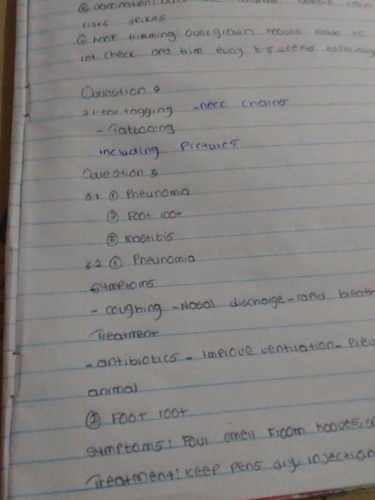 rise spikes
hoof trimming: Overgrown hooves
check and trim every 6-8 weeks especially
Question 2
2.1 ear tagging - neck chains
- Tattooing
including Pictures
Question 3
3.1 ① Pneumoma
② Foot root
③ mastitis
3.2 ① Pneumonia
symptoms
- coughing - Nasal discharge - rapid breath
Treatment
- antibiotics - improve ventilation - Prev
animal
② Foot root
symptoms: Foul smell From hooves, s
Treatment: keep pens dry, injection